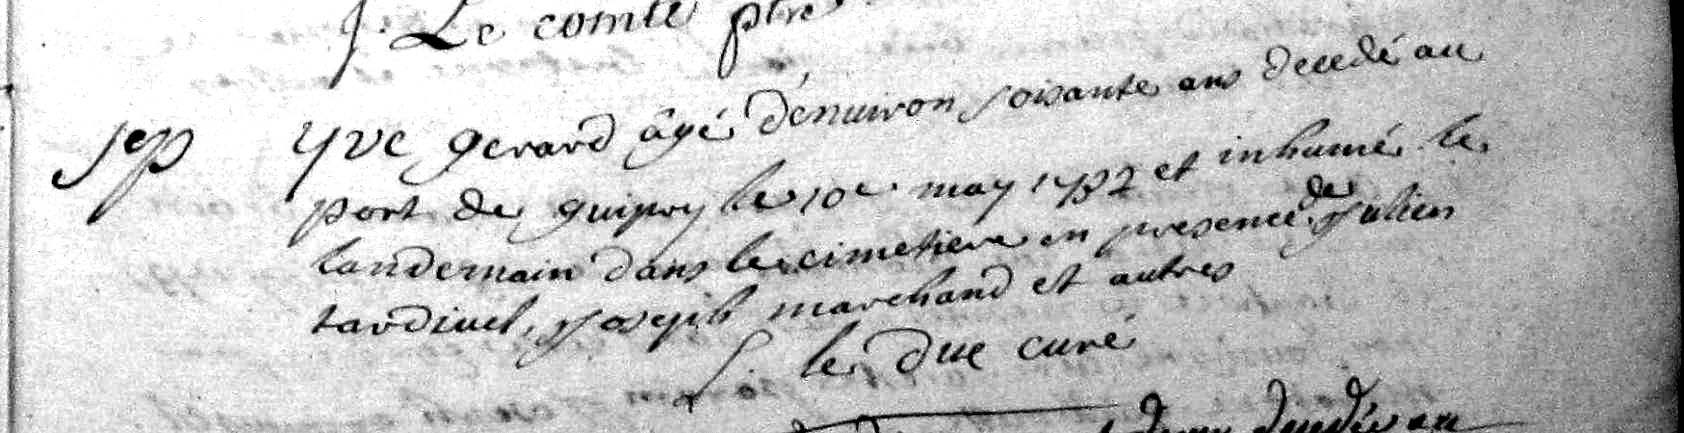 J. Le comte ptre
sep yve gerard âgé d'enuiron soixante ans decedé au
port de guipry le 10e may 1732 et inhumé le
landemain dans le cimetiere en presence de Julien
tardiuel, Joseph marchand et autres
le Duc curé